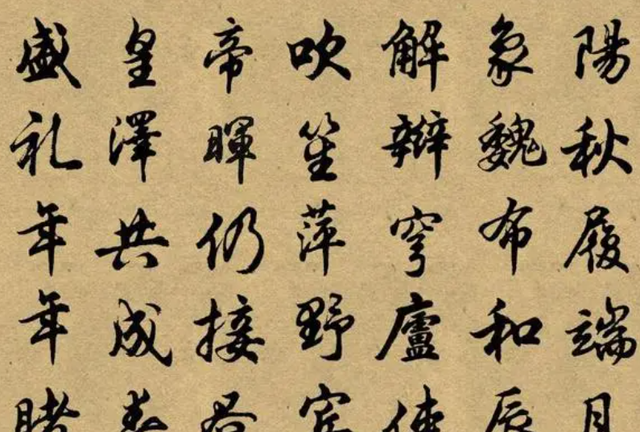 陽秋履端月
象魏布和辰
解辮穹廬使
吹笙萍野賓
帝暉仍接
皇澤共成春
盛礼年年睹